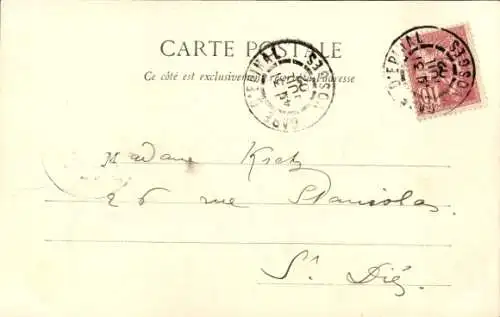 CARTE POSTALE
Ce côté est exclusivement réservé à l'adresse
GARE D'EPINAL VOSGES
D'EPINAL VOSGES
Madame Kratz
26 rue Stanislas.
St Dié,